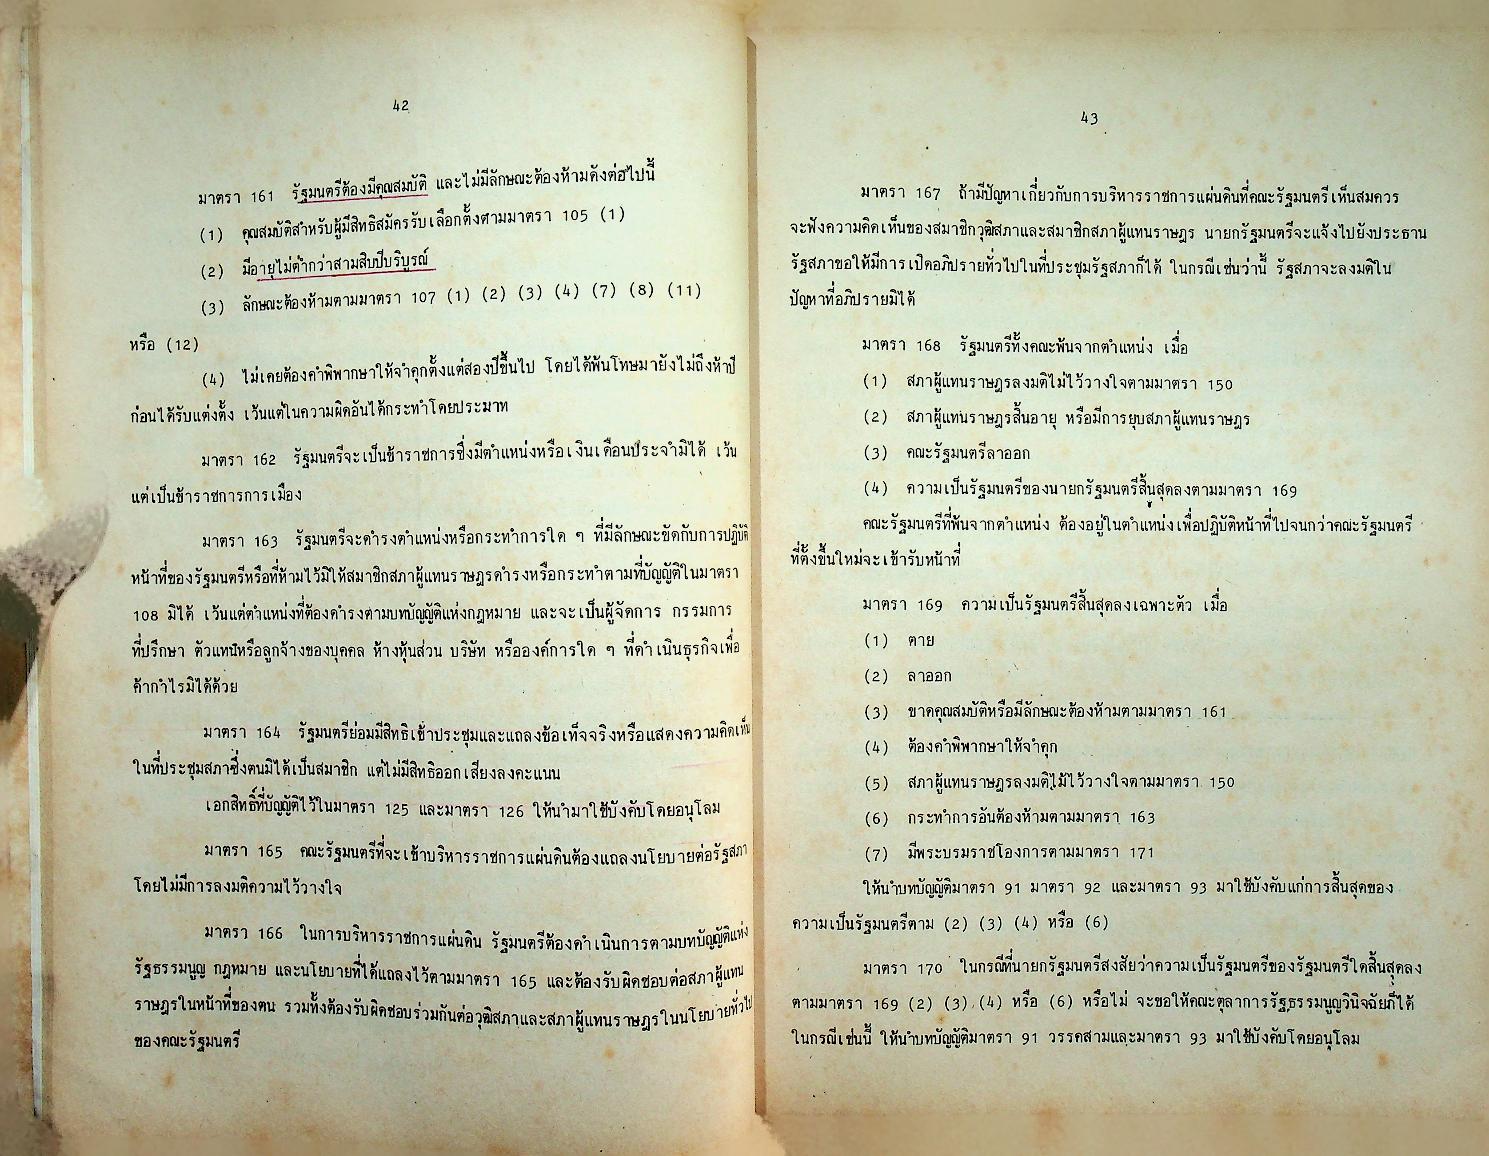 42
มาตรา 161 รัฐมนตรีต้องมีคุณสมบัติ และไม่มีลักษณะต้องห้ามดังต่อไปนี้
(1) คุณสมบัติสำหรับผู้มีสิทธิสมัครรับเลือกตั้งตามมาตรา 105 (1)
(2) มีอายุไม่ต่ำกว่าสามสิบปีบริบูรณ์
(3) ลักษณะต้องห้ามตามมาตรา 107 (1) (2) (3) (4) (7) (8) (11)
หรือ (12)
(4) ไม่เคยต้องคำพิพากษาให้จำคุกตั้งแต่สองปีขึ้นไป โดยได้พ้นโทษมายังไม่ถึงห้าปี
ก่อนได้รับแต่งตั้ง เว้นแต่ในความผิดอันได้กระทำโดยประมาท
มาตรา 162 รัฐมนตรีจะเป็นข้าราชการซึ่งมีตำแหน่งหรือเงินเดือนประจำมิได้ เว้น
แต่เป็นข้าราชการการเมือง
มาตรา 163 รัฐมนตรีจะดำรงตำแหน่งหรือกระทำการใด ๆ ที่มีลักษณะขัดกับการปฏิบัติ
หน้าที่ของรัฐมนตรีหรือที่ห้ามไว้มิให้สมาชิกสภาผู้แทนราษฎรดำรงหรือกระทำตามที่บัญญัติในมาตรา
108 มิได้ เว้นแต่ตำแหน่งที่ต้องดำรงตามบทบัญญัติแห่งกฎหมาย และจะเป็นผู้จัดการ กรรมการ
ที่ปรึกษา ตัวแทนหรือลูกจ้างของบุคคล ห้างหุ้นส่วน บริษัท หรือองค์การใด ๆ ที่ดำเนินธุรกิจเพื่อ
ค้ากำไรมิได้ด้วย
มาตรา 164 รัฐมนตรีย่อมมีสิทธิเข้าประชุมและแถลงข้อเท็จจริงหรือแสดงความคิดเห็น
ในที่ประชุมสภาซึ่งตนมิได้เป็นสมาชิก แต่ไม่มีสิทธิออกเสียงลงคะแนน
เอกสิทธิ์ที่บัญญัติไว้ในมาตรา 125 และมาตรา 126 ให้นำมาใช้บังคับโดยอนุโลม
มาตรา 165 คณะรัฐมนตรีที่จะเข้าบริหารราชการแผ่นดินต้องแถลงนโยบายต่อรัฐสภา
โดยไม่มีการลงมติความไว้วางใจ
มาตรา 166 ในการบริหารราชการแผ่นดิน รัฐมนตรีต้องดำเนินการตามบทบัญญัติแห่ง
รัฐธรรมนูญ กฎหมาย และนโยบายที่ได้แถลงไว้ตามมาตรา 165 และต้องรับผิดชอบต่อสภาผู้แทน
ราษฎรในหน้าที่ของตน รวมทั้งต้องรับผิดชอบร่วมกันต่อวุฒิสภาและสภาผู้แทนราษฎรในนโยบายทั่วไป
ของคณะรัฐมนตรี
43
มาตรา 167 ถ้ามีปัญหาเกี่ยวกับการบริหารราชการแผ่นดินที่คณะรัฐมนตรีเห็นสมควร
จะฟังความคิดเห็นของสมาชิกวุฒิสภาและสมาชิกสภาผู้แทนราษฎร นายกรัฐมนตรีจะแจ้งไปยังประธาน
รัฐสภาขอให้มีการเปิดอภิปรายทั่วไปในที่ประชุมรัฐสภาก็ได้ ในกรณีเช่นว่านี้ รัฐสภาจะลงมติใน
ปัญหาที่อภิปรายมิได้
มาตรา 168 รัฐมนตรีทั้งคณะพ้นจากตำแหน่ง เมื่อ
(1) สภาผู้แทนราษฎรลงมติไม่ไว้วางใจตามมาตรา 150
(2) สภาผู้แทนราษฎรสิ้นอายุ หรือมีการยุบสภาผู้แทนราษฎร
(3) คณะรัฐมนตรีลาออก
(4) ความเป็นรัฐมนตรีของนายกรัฐมนตรีสิ้นสุดลงตามมาตรา 169
คณะรัฐมนตรีที่พ้นจากตำแหน่ง ต้องอยู่ในตำแหน่งเพื่อปฏิบัติหน้าที่ไปจนกว่าคณะรัฐมนตรี
ที่ตั้งขึ้นใหม่จะเข้ารับหน้าที่
มาตรา 169 ความเป็นรัฐมนตรีสิ้นสุดลงเฉพาะตัว เมื่อ
(1) ตาย
(2) ลาออก
(3) ขาดคุณสมบัติหรือมีลักษณะต้องห้ามตามมาตรา 161
(4) ต้องคำพิพากษาให้จำคุก
(5) สภาผู้แทนราษฎรลงมติไม่ไว้วางใจตามมาตรา 150
(6) กระทำการอันต้องห้ามตามมาตรา 163
(7) มีพระบรมราชโองการตามมาตรา 171
ให้นำบทบัญญัติมาตรา 91 มาตรา 92 และมาตรา 93 มาใช้บังคับแก่การสิ้นสุดของ
ความเป็นรัฐมนตรีตาม (2) (3) (4) หรือ (6)
มาตรา 170 ในกรณีที่นายกรัฐมนตรีสงสัยว่าความเป็นรัฐมนตรีของรัฐมนตรีใดสิ้นสุดลง
ตามมาตรา 169 (2) (3) (4) หรือ (6) หรือไม่ จะขอให้คณะตุลาการรัฐธรรมนูญวินิจฉัยก็ได้
ในกรณีเช่นนี้ ให้นำบทบัญญัติมาตรา 91 วรรคสามและมาตรา 93 มาใช้บังคับโดยอนุโลม